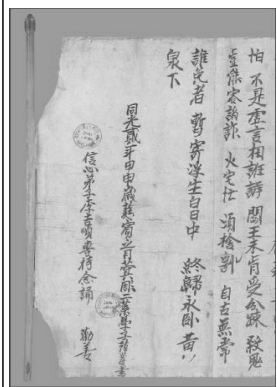 怕 不是虛言相誑諕 閻王未肯受分踈 殺鬼
豈能容諂詐 火宅忙 須捨割 自古無常
誰免者 暫寄浮生白日中 終歸永臥黃
泉下
同光貳年甲申歲蕤賓之月蓂彫二葉學子薛安俊書
信心弟子李吉順專持念誦 勸善